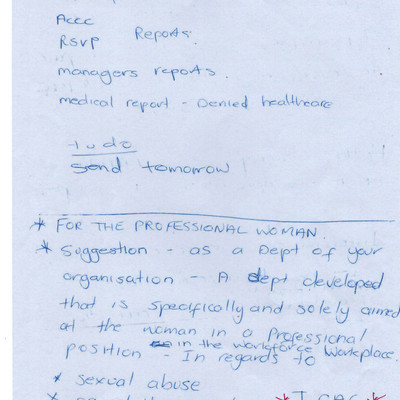 Accc
RSVP Reports.
managers reports.
medical report - Denied healthcare
to do
send tomorrow!
* FOR THE PROFESSIONAL WOMAN.
* Suggestion - as a Dept of your
organisation - A dept developed
that is specifically and solely aimed
at the woman in a Professional
position - in the workforce Workplace.
In regards to
* sexual abuse